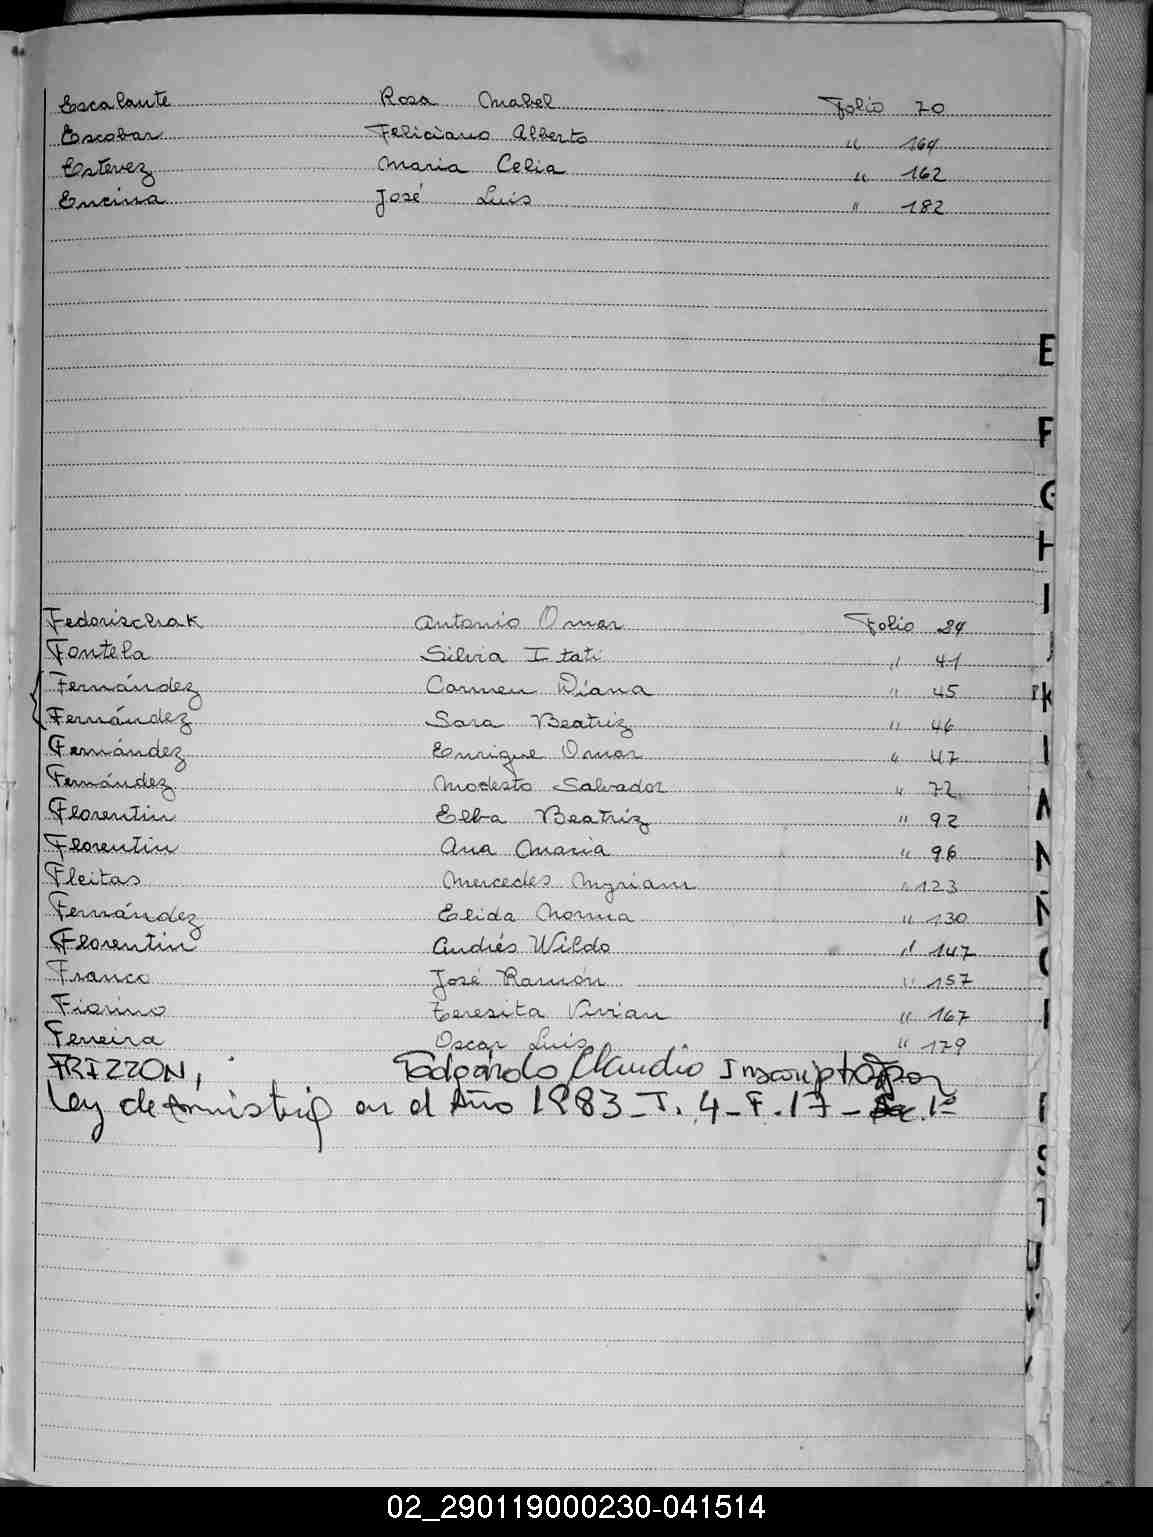 Escalante Rosa Mabel Folio 70
Escobar Feliciano Alberto " 164
Estevez Maria Celia " 162
Encina José Luis " 182
E
F
G
H
I
J
K
Fedorischak Antonio Omar Folio 24
Fontela Silvia Itati " 41
Fernández Carmen Diana " 45
Fernández Sara Beatriz " 46
Fernández Enrique Omar " 47
Fernández Modesto Salvador " 72
Florentin Elba Beatriz " 92
Florentin Ana Maria " 96
Fleitas Mercedes Myriam " 123
Fernández Elida Norma " 130
Florentin Andrés Wildo " 147
Franco José Ramón " 157
Fiorino Teresita Vivian " 167
Ferreira Oscar Luis " 179
FRIZZON, Edgardo Claudio Inscripto por
Ley de amnistia en el Año 1983_T. 4_F. 17_ 1º
N
Ñ
O
S
T
U
02_290119000230-041514